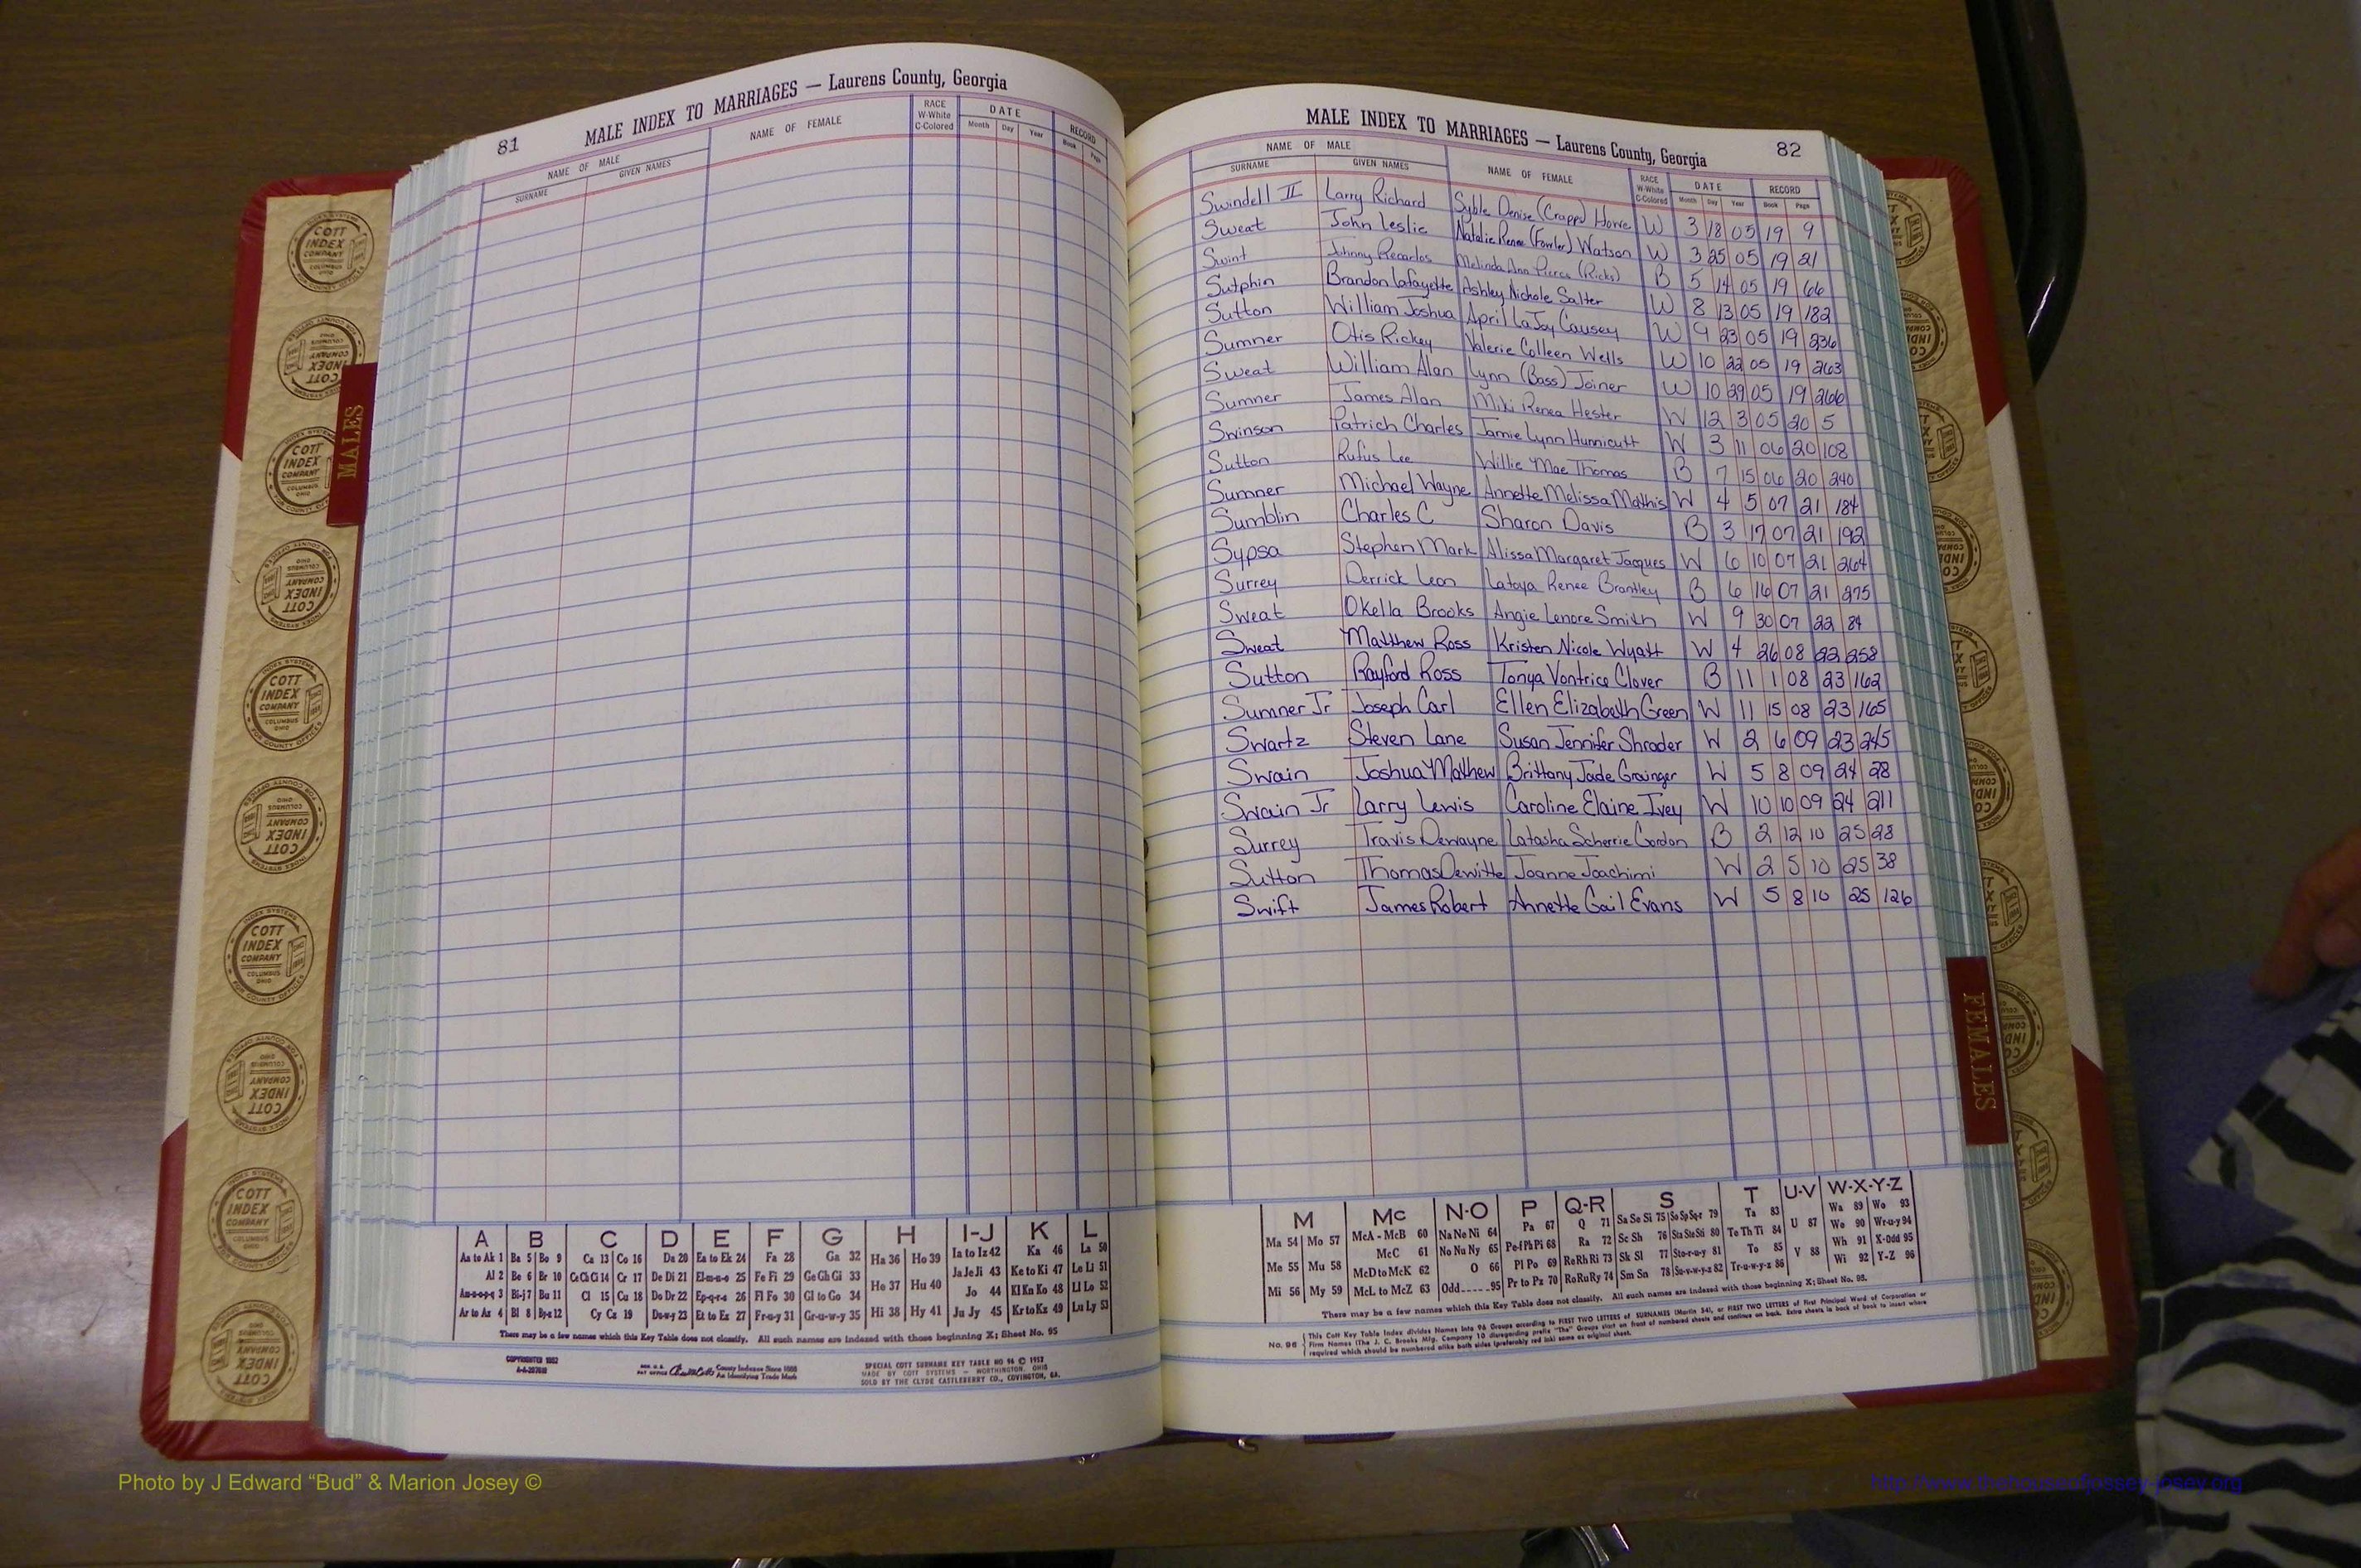 81
MALE INDEX TO MARRIAGES — Laurens County, Georgia
NAME OF MALE
SURNAME GIVEN NAMES
NAME OF FEMALE
RACE W-White C-Colored
DATE Month Day Year
RECORD Book Page
MALES
A B C D E F G H I-J K L
Aa to Ak 1 Ba 5 Bo 9 Ca 13 Co 16 Da 20 Ea to Ek 24 Fa 28 Ga 32 Ha 36 Ho 39 Ia to Iz 42 Ka 46 La 50
Al 2 Be 6 Br 10 Ce Ch Ci 14 Cr 17 De Di 21 El-m-n-o 25 Fe Fi 29 Ge Gh Gi 33 He 37 Hu 40 Ja Je Ji 43 Ke to Ki 47 Le Li 51
Am-n-o-p-q 3 Bi-j 7 Bu 11 Cl 15 Cu 18 Do Dr 22 Ep-q-r-s 26 Fl Fo 30 Gl to Go 34 Hi 38 Hy 41 Jo 44 Kl Kn Ko 48 Ll Lo 52
Ar to Az 4 Bl 8 By-z 12 Cy Cz 19 Du-w-y 23 Et to Ez 27 Fr-u-y 31 Gr-u-w-y 35 Ju Jy 45 Kr to Kz 49 Lu Ly 53
There may be a few names which this Key Table does not classify. All such names are indexed with those beginning X; Sheet No. 95
COPYRIGHTED 1952
County Indexes Since 1888
An Identifying Trade Mark
SPECIAL COTT SURNAME KEY TABLE NO 96 © 1957
MADE BY COTT SYSTEMS - WORTHINGTON, OHIO
SOLD BY THE CLYDE CASTLEBERRY CO., COVINGTON, GA.
MALE INDEX TO MARRIAGES — Laurens County, Georgia
82
NAME OF MALE
SURNAME GIVEN NAMES
NAME OF FEMALE
RACE W-White C-Colored
DATE Month Day Year
RECORD Book Page
Swindell II Larry Richard Syble Denise (Crapps) Howe W 3 18 05 19 9
Sweat John Leslie Natalie Renee (Fowler) Watson W 3 25 05 19 21
Swint Johnny Recardos Melinda Ann Pierce (Ricks) B 5 14 05 19 66
Sutphin Brandon Lafayette Ashley Nichole Salter W 8 13 05 19 182
Sutton William Joshua April LaJoy Causey W 9 23 05 19 236
Sumner Otis Rickey Valerie Colleen Wells W 10 22 05 19 263
Sweat William Alan Lynn (Bass) Joiner W 10 29 05 19 266
Sumner James Alan Miki Renea Hester W 12 3 05 20 5
Swinson Patrich Charles Jamie Lynn Hunnicutt W 3 11 06 20 108
Sutton Rufus Lee Willie Mae Thomas B 7 15 06 20 240
Sumner Michael Wayne Annette Melissa Mathis W 4 5 07 21 184
Sumblin Charles C Sharon Davis B 3 17 07 21 192
Sypsa Stephen Mark Alissa Margaret Jacques W 6 10 07 21 264
Surrey Derrick Leon Lataya Renee Brantley B 6 16 07 21 275
Sweat Okella Brooks Angie Lenore Smith W 9 30 07 22 84
Sweat Matthew Ross Kristen Nicole Wyatt W 4 26 08 22 258
Sutton Rayford Ross Tonya Vontrice Clover B 11 1 08 23 162
Sumner Jr Joseph Carl Ellen Elizabeth Green W 11 15 08 23 165
Swartz Steven Lane Susan Jennifer Shrader W 2 6 09 23 245
Swain Joshua Mathew Brittany Jade Grainger W 5 8 09 24 28
Swain Jr Larry Lewis Caroline Elaine Ivey W 10 10 09 24 211
Surrey Travis Dewayne Latasha Scherrie Gordon B 2 12 10 25 28
Sutton Thomas Dewitte Joanne Joachimi W 2 5 10 25 38
Swift James Robert Annette Gail Evans W 5 8 10 25 126
FEMALES
M Mc N-O P Q-R S T U-V W-X-Y-Z
Ma 54 Mo 57 McA - McB 60 Na Ne Ni 64 Pa 67 Q 71 Sa Se Si 75 So Sp Sq-r 79 Ta 83 U 87 Wa 89 Wo 93
Me 55 Mu 58 McC 61 No Nu Ny 65 Pe-f Ph Pi 68 Ra 72 Sc Sh 76 Sta Ste Sti 80 Te Th Ti 84 V 88 We 90 Wr-u-y 94
Mi 56 My 59 McD to McK 62 O 66 Pl Po 69 Re Rh Ri 73 Sk Sl 77 Sto-r-u-y 81 To 85 Wh 91 X-Odd 95
McL to McZ 63 Odd 95 Pr to Pz 70 Ro Ru Ry 74 Sm Sn 78 Su-v-w-y-z 82 Tr-u-w-y-z 86 Wi 92 Y-Z 96
There may be a few names which this Key Table does not classify. All such names are indexed with those beginning X; Sheet No. 95.
No. 96 This Cott Key Table Index divides Names into 96 Groups according to FIRST TWO LETTERS of SURNAMES (Martin 54), or FIRST TWO LETTERS of First Principal Word of Corporation or
Firm Names (The J. C. Brooks Mfg. Company 10 disregarding prefix "The" Groups start on front of numbered sheets and continue on back. Extra sheets in back of book to insert where
required which should be numbered alike both sides (preferably red ink) same as original sheet.
COTT INDEX COMPANY
COLUMBUS OHIO
INDEX SYSTEMS FOR COUNTY OFFICES
Photo by J Edward “Bud” & Marion Josey ©
http://www.thehouseofjossey-josey.org